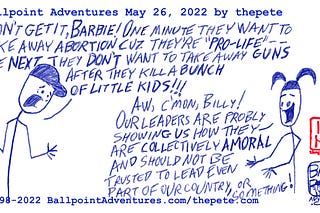 llpoint Adventures May 26, 2022 by thepete
ON'T GET IT, BARBIE! ONE MINUTE THEY WANT TO
KE AWAY ABORTION CUZ THEY'RE "PRO-LIFE"--
E NEXT THEY DON'T WANT TO TAKE AWAY GUNS
AFTER THEY KILL A BUNCH
OF LITTLE KIDS!!!
AW, C'MON, BILLY!
OUR LEADERS ARE PROBLY
SHOWING US HOW THEY
ARE COLLECTIVELY AMORAL
AND SHOULD NOT BE
TRUSTED TO LEAD EVEN
PART OF OUR COUNTRY, OR
SOMETHING!
98-2022 BallpointAdventures.com/thepete.com